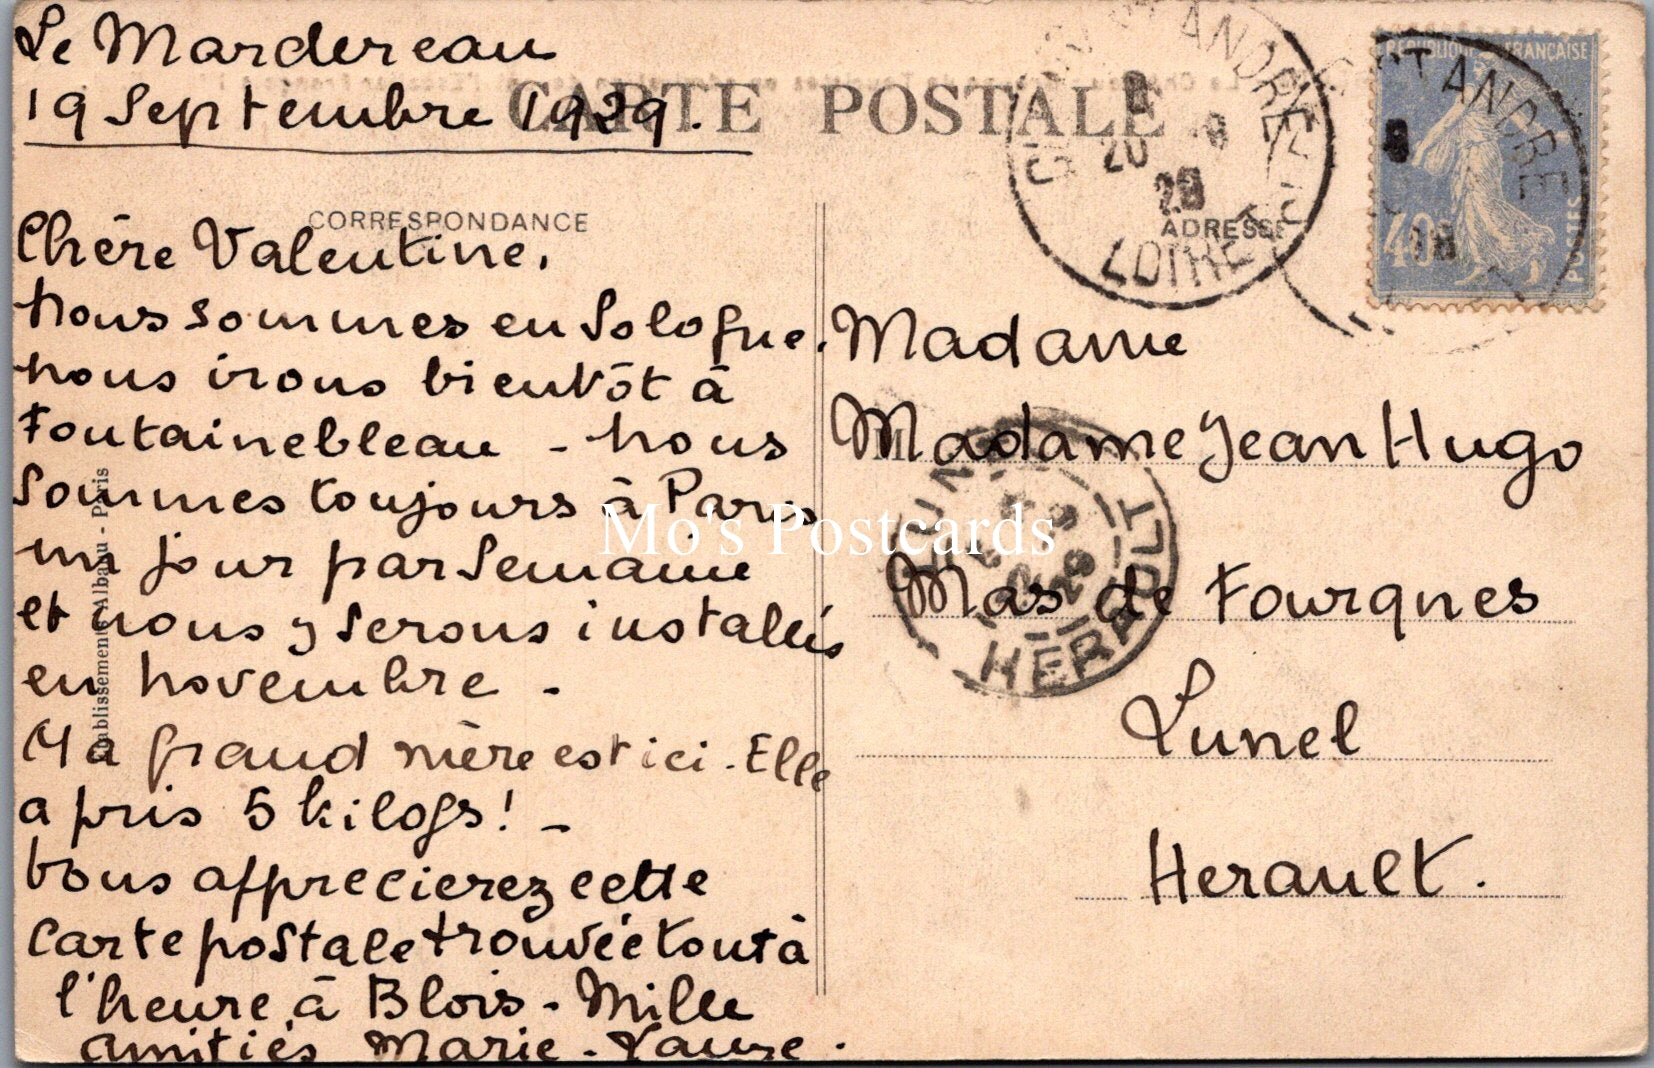 Le Mardereau
19 Septembre 1929.
CARTE POSTALE
CORRESPONDANCE
ADRESSE
REPUBLIQUE FRANÇAISE
POSTES
40c
CLERY ST ANDRE
LOIRET
20
29
Chère Valentine,
nous sommes en Sologne.
nous irons bientôt à
Fontainebleau - nous
sommes toujours à Paris
un jour par semaine
et nous y serons installés
en novembre -
Ma grand mère est ici - Elle
a pris 5 kilogs! -
vous apprecierez cette
carte postale trouvée tout à
l'heure à Blois - Mille
amitiés Marie-Laure.
Madame
Madame Jean Hugo
Mas de Fourques
Lunel
Herault.
HERAULT
29
Mo's Postcards
Etablissements Albaau - Paris